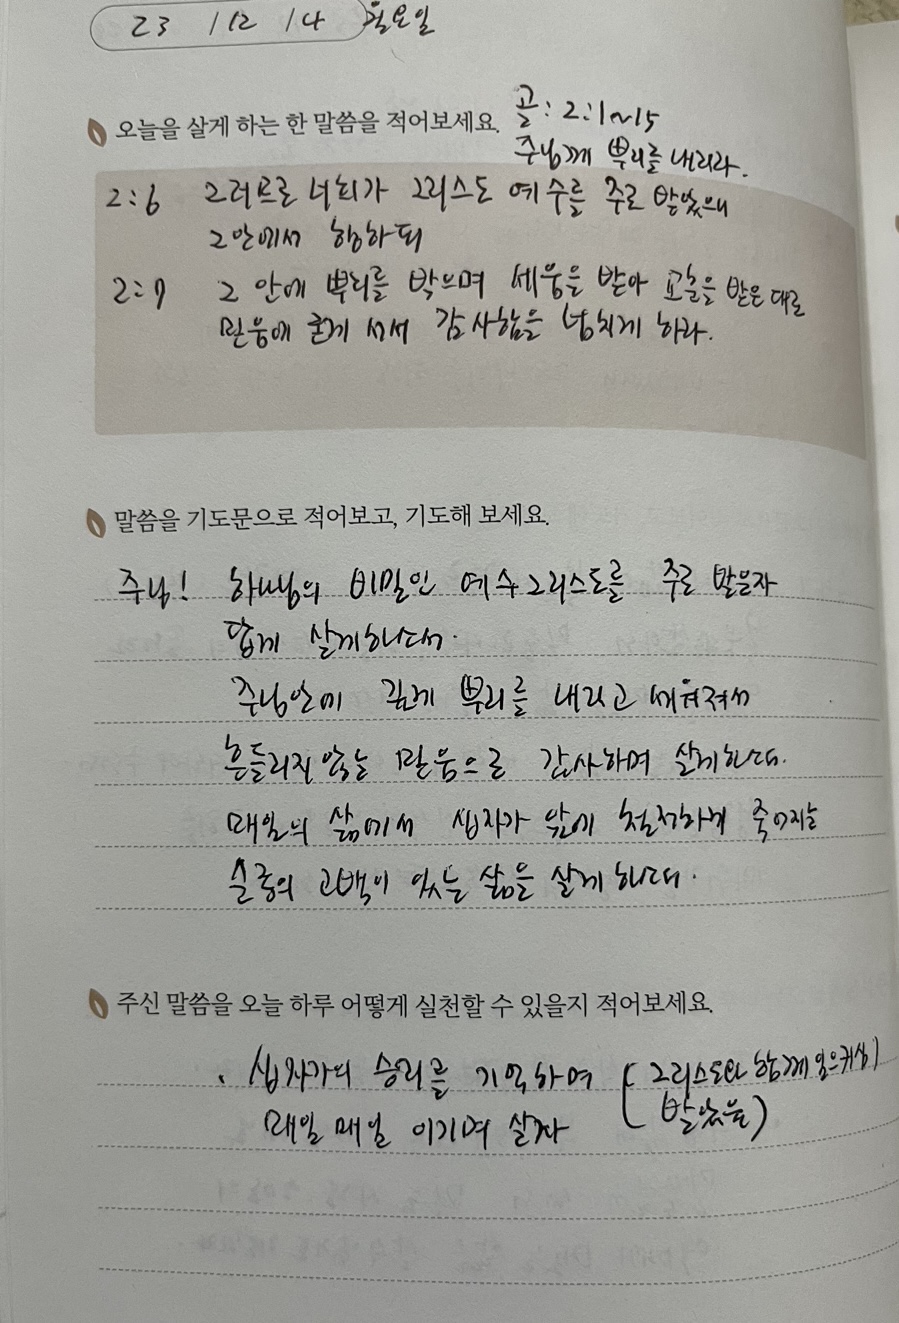 23 / 12 / 14 목요일
오늘을 살게 하는 한 말씀을 적어보세요.
골: 2:1~15
주님께 뿌리를 내리라.
2:6 그러므로 너희가 그리스도 예수를 주로 받았으니
그 안에서 행하되
2:7 그 안에 뿌리를 박으며 세움을 받아 교훈을 받은 대로
믿음에 굳게 서서 감사함을 넘치게 하라.
말씀을 기도문으로 적어보고, 기도해 보세요.
주님! 하나님의 비밀인 예수그리스도를 주로 받은자
답게 살게하소서.
주님안에 깊게 뿌리를 내리고 세워져서
흔들리지 않는 믿음으로 감사하며 살게하소서.
매일의 삶에서 십자가 앞에 철저하게 죽어지는
순종의 고백이 있는 삶을 살게 하소서.
주신 말씀을 오늘 하루 어떻게 실천할 수 있을지 적어보세요.
. 십자가의 승리를 기억하며 (그리스도와 함께 일으키심
받았음)
매일 매일 이기며 살자